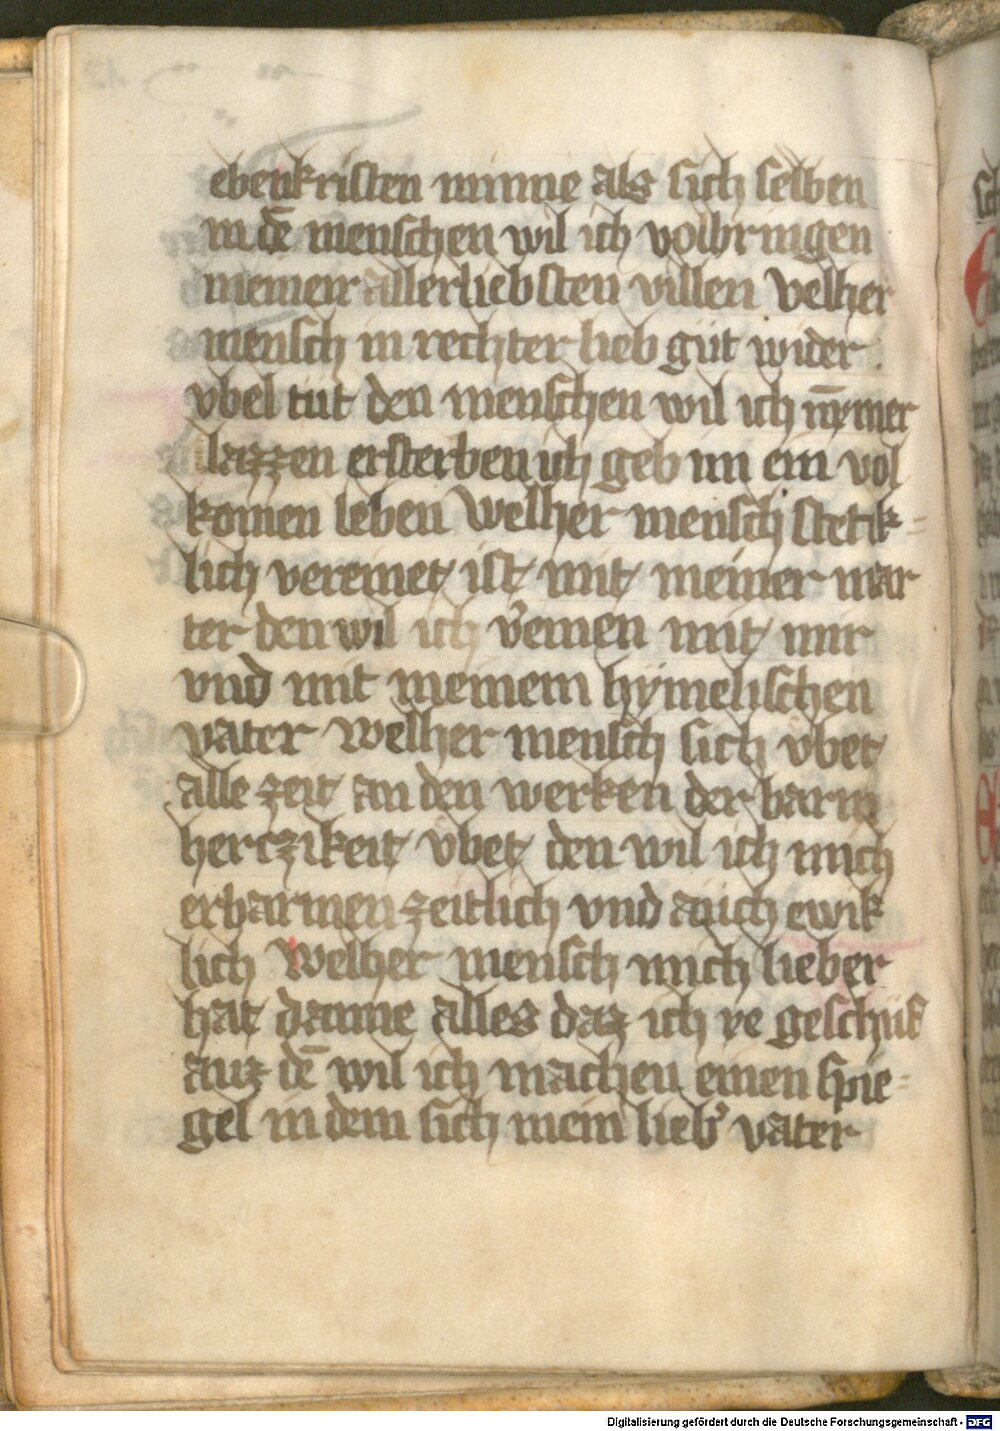 ebenkristen minne als sich selben
in dē menschen wil ich volbringen
meinen allerliebsten villen velher
mensch in rechter lieb güt wider
vbel tüt den menschen wil ich nȳmer
lazzen ersterben ich geb im ein vol
komen leben Welher mensch stetik-
lich vereinet ist mit meiner mar
ter den wil ich v̉einen mit mir
vnd mit meinem hymelischen
vater Welher mensch sich vbet
alle zeit an den werken der barm
herczikeit vbet den wil ich mich
erbarmen zeitlich vnd auch ewik
lich Welher mensch mich lieber
hat danne alles daz ich ye geschüf
auz dē wil ich machen einen spie-
gel in dem sich mein lieb̉ vater
Digitalisierung gefördert durch die Deutsche Forschungsgemeinschaft - DFG